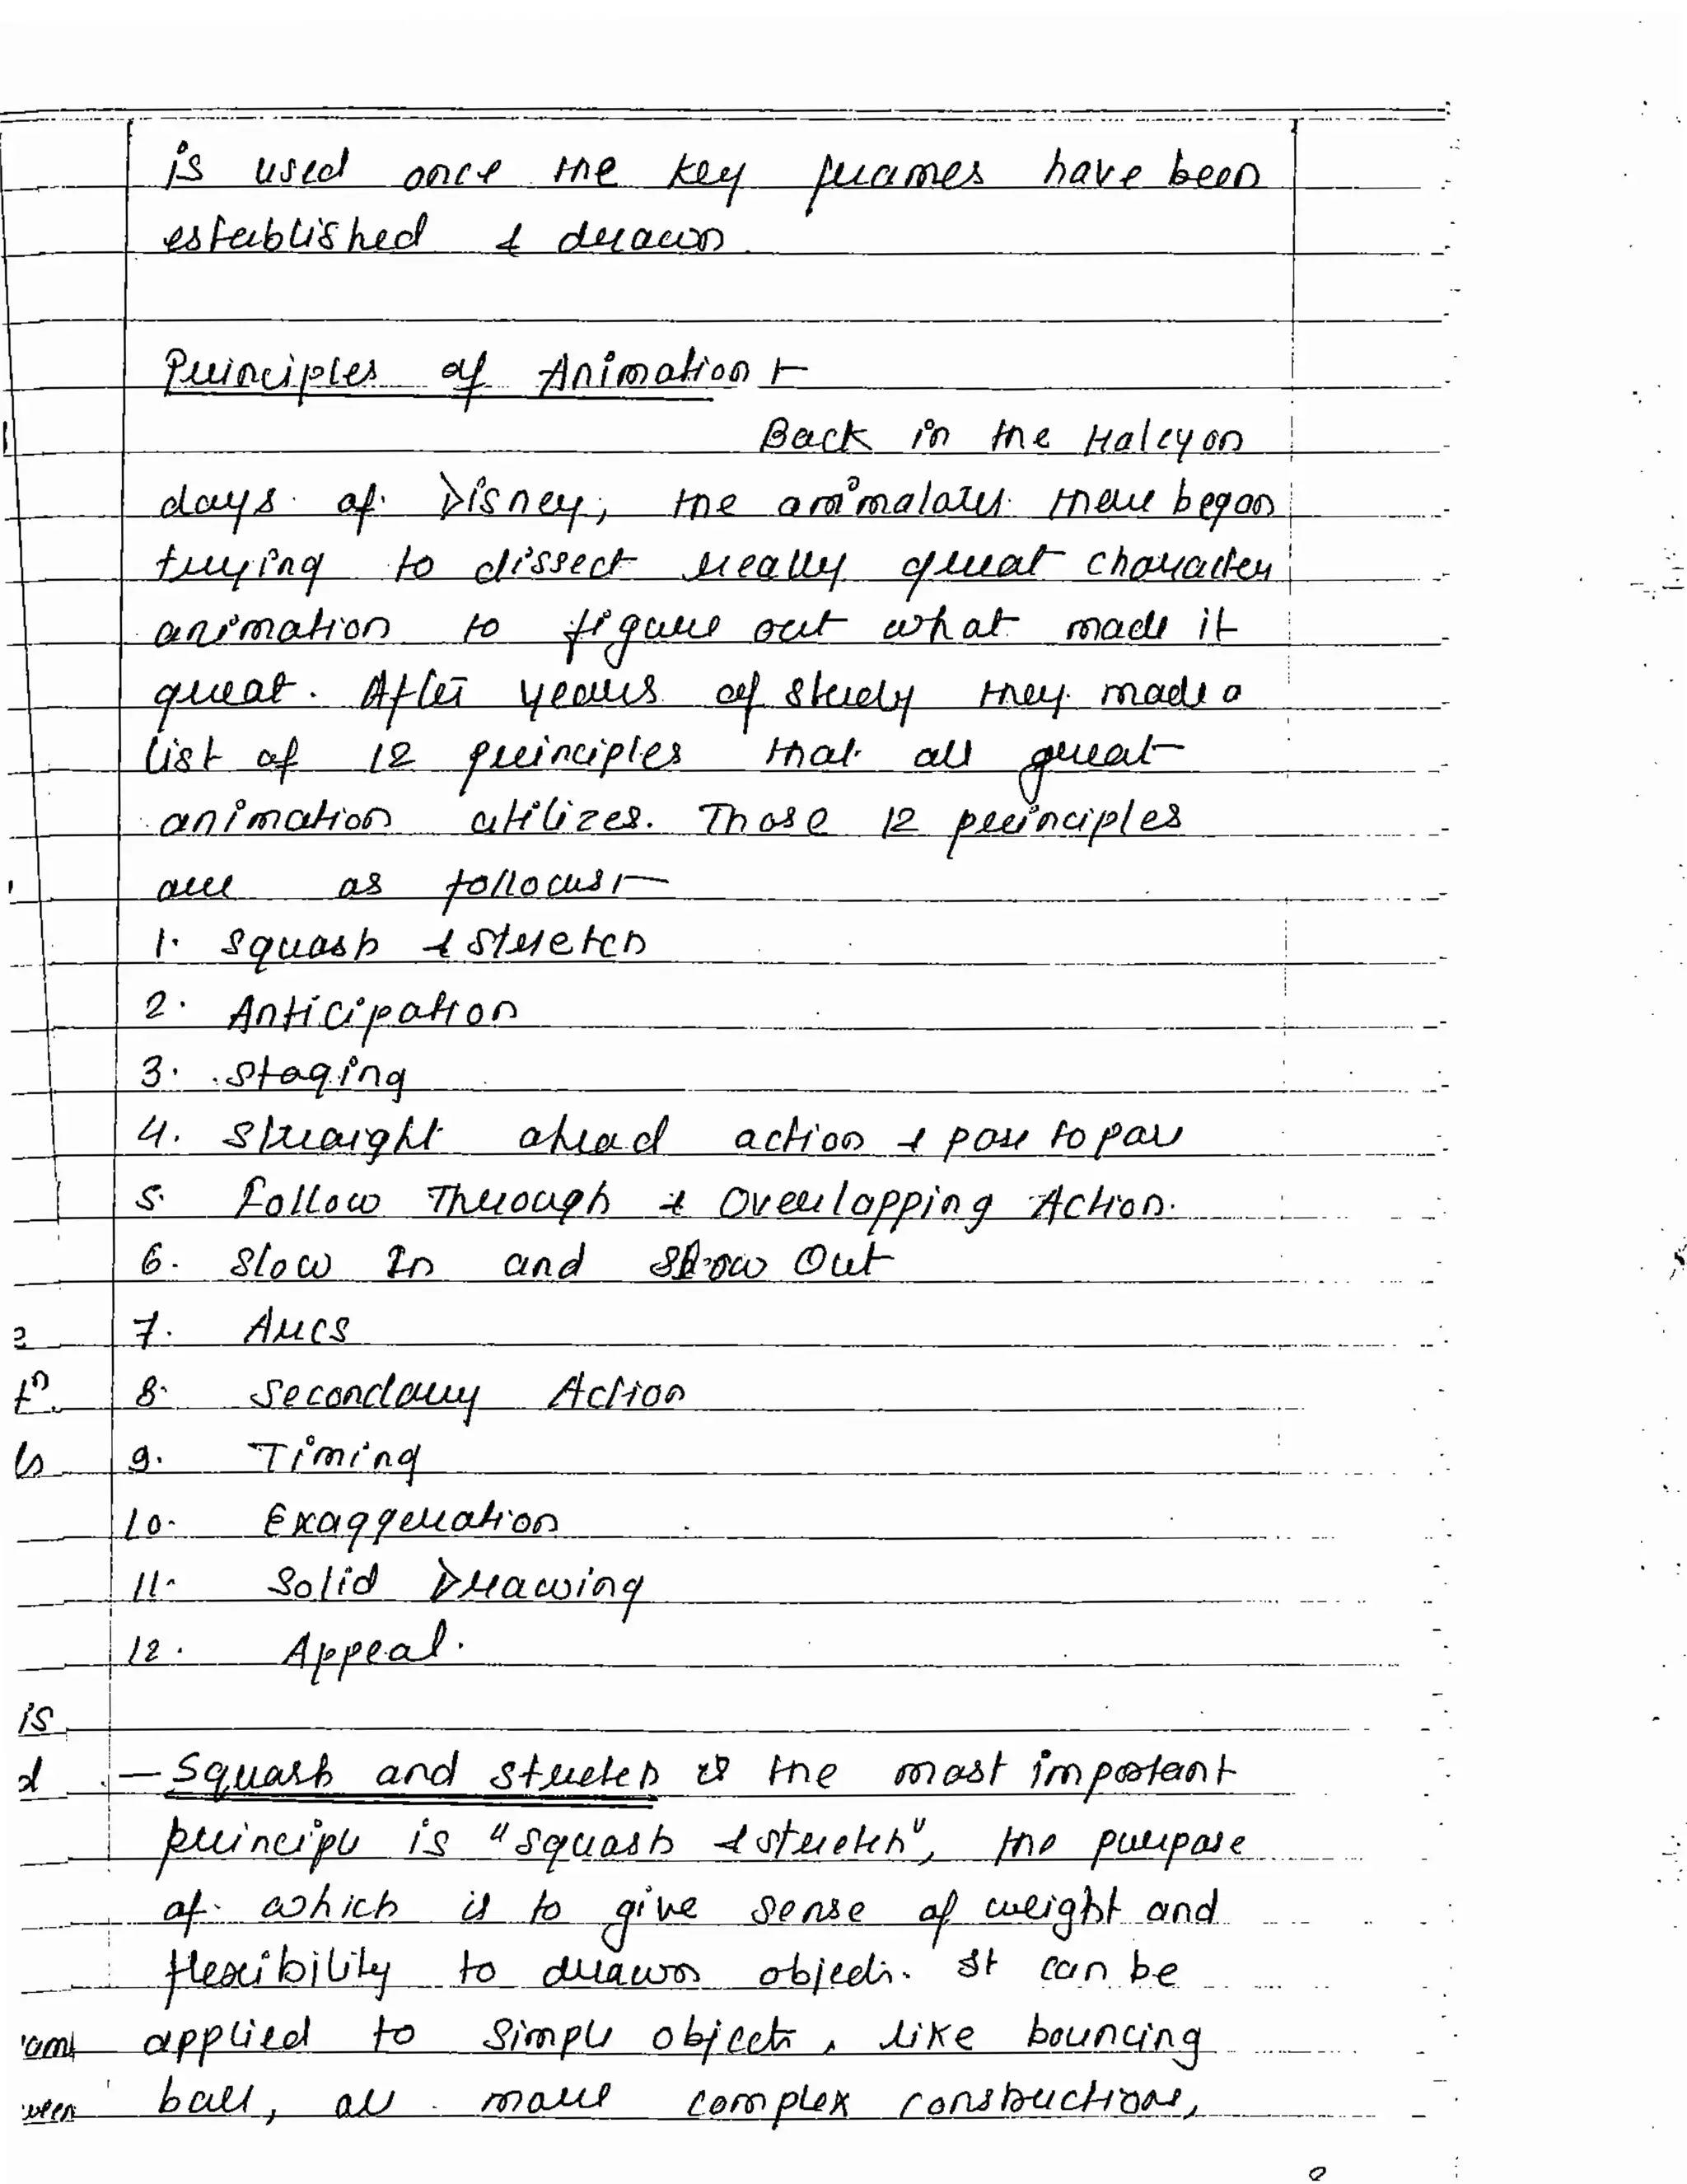 is used once the key frames have been
established & drawn
Principles of Animation :-
Back in the Halcyon
days of Disney, the animators there began
trying to dissect really great character
animation to figure out what made it
great. After years of study they made a
list of 12 principles that all great
animation utilizes. Those 12 principles
are as follows :-
1. Squash & Stretch
2. Anticipation
3. Staging
4. Straight ahead action & pose to pose
5. Follow Through & Overlapping Action.
6. Slow In and Slow Out
7. Arcs
8. Secondary Action
9. Timing
10. Exaggeration
11. Solid Drawing
12. Appeal.
is
d — Squash and stretch is the most important
principle is "squash & stretch", the purpose
of which is to give sense of weight and
flexibility to drawn objects. It can be
applied to simple objects, like bouncing
ball, or more complex constructions,